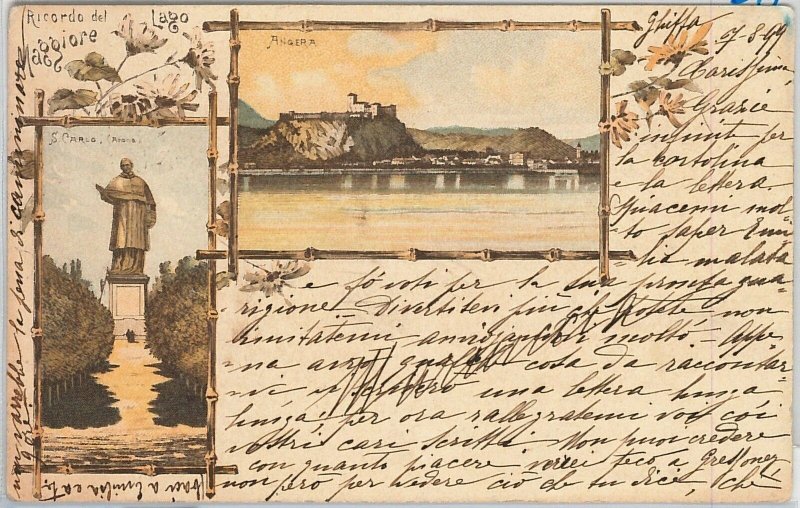 Ricordo del Lago
Maggiore
ANGERA
S. CARLO, (ARONA)
Ghiffa 7-8-99
Carissima
Grazie
infinite per
la cartolina
e la lettera
Spiacemi mol
to saper Emi
lia malata
e fò voti per la sua pronta gua
rigione. Divertitevi più che potete non
imitatemi annoiandovi molto. Appe
na avrò qualche cosa da raccontar
vi vi scriverò una lettera lunga
lunga, per ora rallegratemi voi coi
vostri cari scritti. Non puoi credere
con quanto piacere verrei teco a Gressoney
non però per vedere ciò che tu dici, chè
non varrebbe la pena di camminare
Baci a Emilia e a te